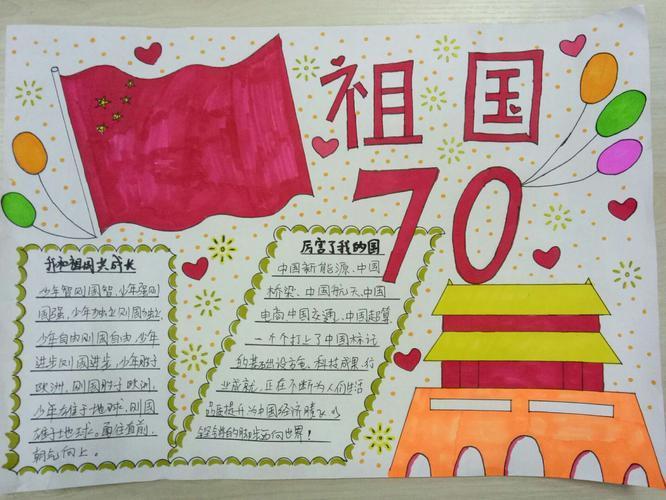 祖国
70
我和祖国共成长
少年智则国智,少年强则
国强,少年独立则国独立
少年自由则国自由,少年
进步则国进步,少年胜于
欧洲,则国胜于欧洲,
少年雄于地球,则国
雄于地球。勇往直前,
朝气向上。
厉害了我的国
中国新能源、中国
桥梁、中国航天、中国
电商中国交通、中国超算
一个个打上了中国标记
的基础设施、科技成果、行
业成就,正在不断为人们生活
品质提升为中国经济腾飞,以
铿锵的脚步迈向世界!